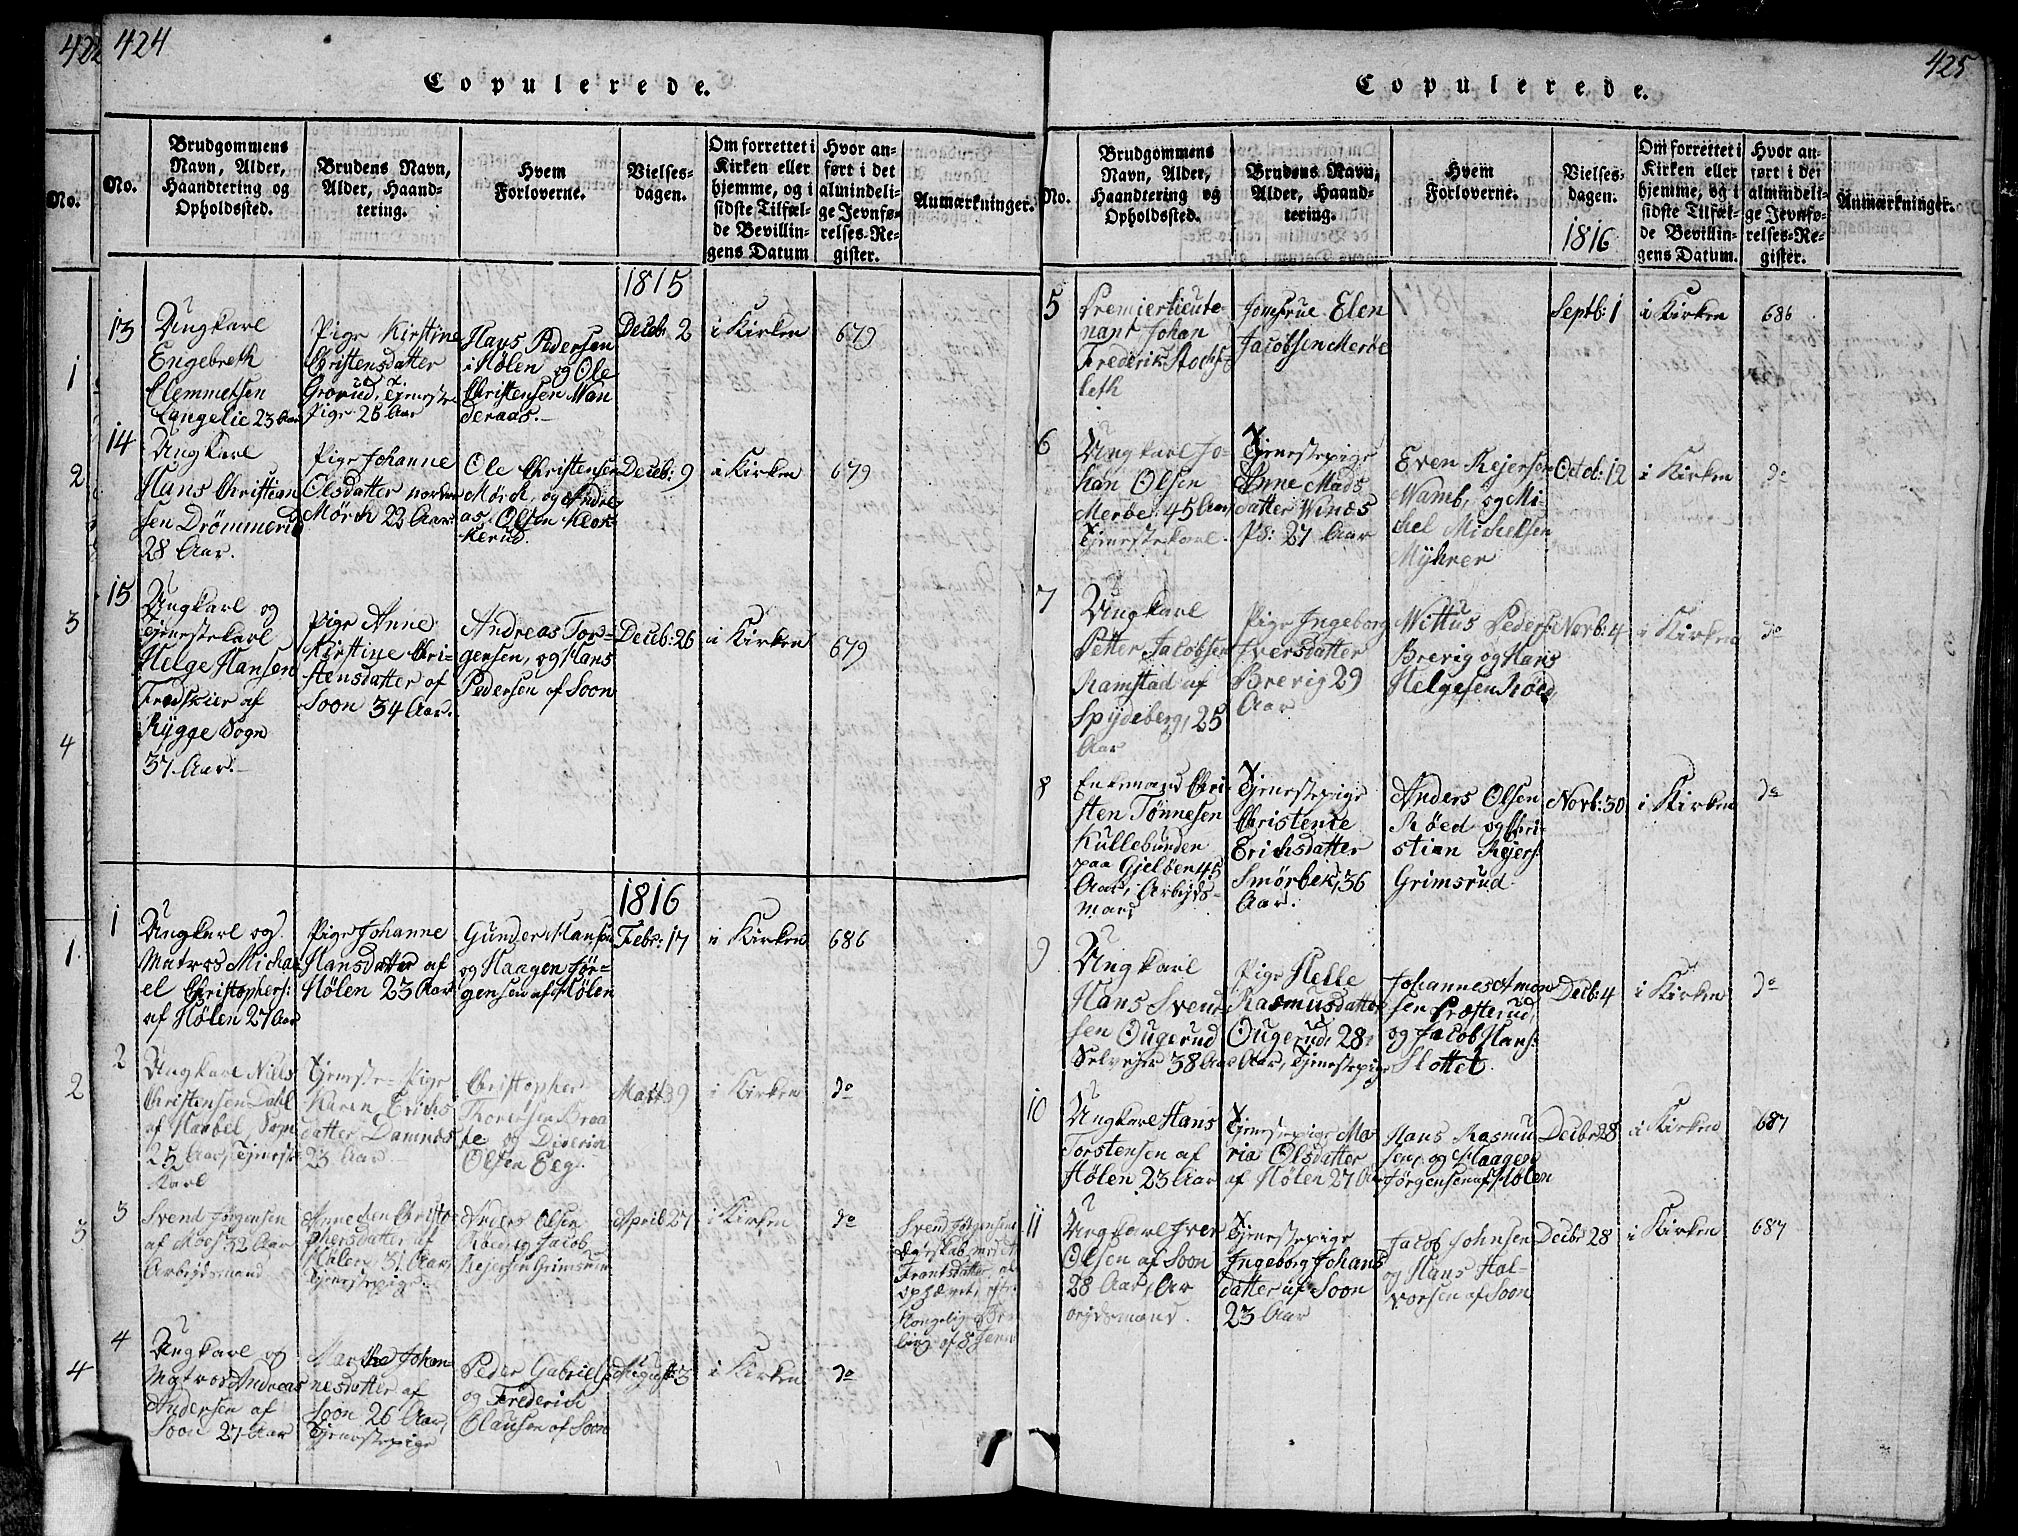 422
424
Copulerede.
No.
No.
Brudgommens
Navn, Alder,
Haandtering og
Opholdssted.
Brudens Navn,
Alder, Haand-
tering.
Hvem
Forloverne.
Vielses-
dagen.
Om forrettet i
Kirken eller
hjemme, og i
sidste Tilfæl-
de Bevillin-
gens Datum
Hvor an-
ført i det
almindeli-
ge Jevnfø-
relses-Re-
gister.
Anmærkninger.
1
2
3
4
1.
2
3
4
1815
13
Ungkarl
Engebreth
Clemmetsen
Langelie 23 Aar
Pige Kirstine
Christensdatter
Grorud, Tjeneste
Pige 26 Aar
Hans Pedersen
i Hølen og Ole
Christensen Wan
deraas.
Decb: 2
i Kirken
679
14
Ungkarl
Hans Christian
sen Drömmerud
28 Aar.
Pige Johanne
Olsdatter nordre
Mørch 22 Aar
Ole Christensen
Mørch, og Andre
as Olsen Klok
kerud.
Decb: 9
i Kirken
679
15
Ungkarl og
Tjenestekarl
Helge Hansen
Fredskier af
Rygge Sogn
37 Aar.
Pige Anne
Kirstine Chri-
stensdatter af
Soon 34 Aar.
Andreas Tor-
gensen, og Hans
Pedersen af Soon
Decb: 26
i Kirken
679
1816
1
Ungkarl og
Matros Micha
el Christophers:
af Hølen 27 Aar
Pige Johanne
Hansdatter af
Hølen 23 Aar
Gunder Hansen
og Haagen Jör-
gensen af Hølen
Febr: 17
i Kirken
686
2
Ungkarl Niels
Christensen Dahl
af Haabel Sogn
25 Aar, Tjeneste
Karl
Tjeneste-Pige
Karen Erichs
datter Damnæs
23 Aar
Christopher
Thoresen Braa
te og Diverin
Olsen Eeg.
Mart: 9
i Kirken
do
3
Svend Jörgensen
af Mors 32 Aar
Arbejdsmand
Anne den Christo
phersdatter af
Hølen 31 Aar,
Tjenestepige.
Anders Olsen
Røed og Jacob
Rejersen Grimsrud
April 27
i Kirken
do
Svend Jörgensens
Egteskab med A
Frantsdatter, er
ophævet, efter
Kongelig Be
ling af 8 Janu
4
Ungkarl og
Matros Andreas
Andersen af
Soon 27 Aar
Marthe Johan-
nesdatter af
Soon 26 Aar,
Tjenestepige
Peder Gabriels:
og Frederich
Clausen af Soon
August 3
i Kirken
do
425
Copulerede.
No.
Brudgommens
Navn, Alder,
Haandtering og
Opholdssted.
Brudens Navn,
Alder, Haand-
tering.
Hvem
Forloverne.
Vielses-
dagen.
1816
Om forrettet i
Kirken eller
hjemme, og i
sidste Tilfæl-
de Bevillin-
gens Datum.
Hvor an-
ført i det
almindeli-
ge Jevnfø-
relses-Re-
gister.
Anmærkninger.
5
Premierlieute-
nant Johan
Frederik Stochf-
leth
Jomfrue Elen
Jacobsen Merbe
Septb: 1
i Kirken
686
6
Ungkarl Jo-
han Olsen
Merbe 45 Aar,
Tjenestekarl.
Tjenestepige
Anne Mads
datter Winæs
Ps: 27 Aar
Even Rejersen
Wamb, og Mi-
chel Michelsen
Myhrer
Octob: 12
i Kirken
do
7
Ungkarl
Petter Jacobsen
Ramstad af
Spydeberg, 25
Aar
Pige Ingeborg
Iversdatter
Brevig 29
Aar
Wittus Pedersen
Brevig og Hans
Helgesen Røed
Novb: 4
i Kirken
do
8
Enkemand Chri-
sten Tønnesen
Kullebunden
paa Gjeløen 45
Aar, Arbejds-
mand
Tjenestepige
Christence
Erichsdatter
Smørbek, 36
Aar.
Anders Olsen
Røed og Chri-
stian Rejers:
Grimsrud
Novb: 30
i Kirken
do
9
Ungkarl
Hans Svend
sen Ougerud
Selvejer 38 Aar
Pige Helle
Rasmusdatter
Ougerud, 28
Aar, Tjenestepige
Johannes Amon
sen Præsterud,
og Jacob Hans:
Slottet.
Decb: 4
i Kirken
do
10
Ungkarl Hans
Torstensen af
Hølen 23 Aar
Tjenestepige Ma
ria Olsdatter
af Hølen 27 Aar
Hans Rasmu
sen, og Haagen
Jørgensen af Hølen
Decbr 28
i Kirken
687
11
Ungkarl Iver
Olsen af Soon
28 Aar, Ar
bejdsmand.
Tjenestepige
Ingeborg Johans
datter af Soon
23 Aar
Jacob Johnsen
og Hans Hal-
vorsen af Soon
Decbr 28
i Kirken
687